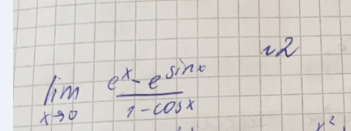 ~2
lim x→0 (e^x - e^sinx) / (1-cosx)
x²